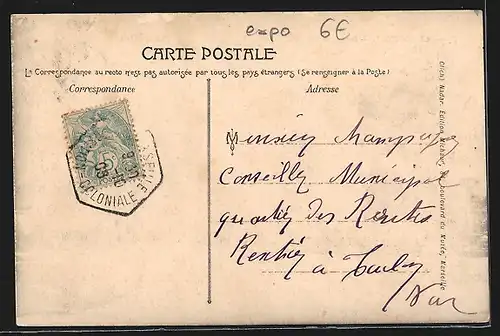 expo 6€
CARTE POSTALE
La Correspondance au recto n'est pas autorisée par tous les pays étrangers (Se renseigner à la Poste)
Correspondance
Adresse
COLONIALE
Monsieur
Conseiller Municipal
quartier des Routes
Rentier
à
Var
Cliché Nadar. Edition boulevard du Musée, Marseille